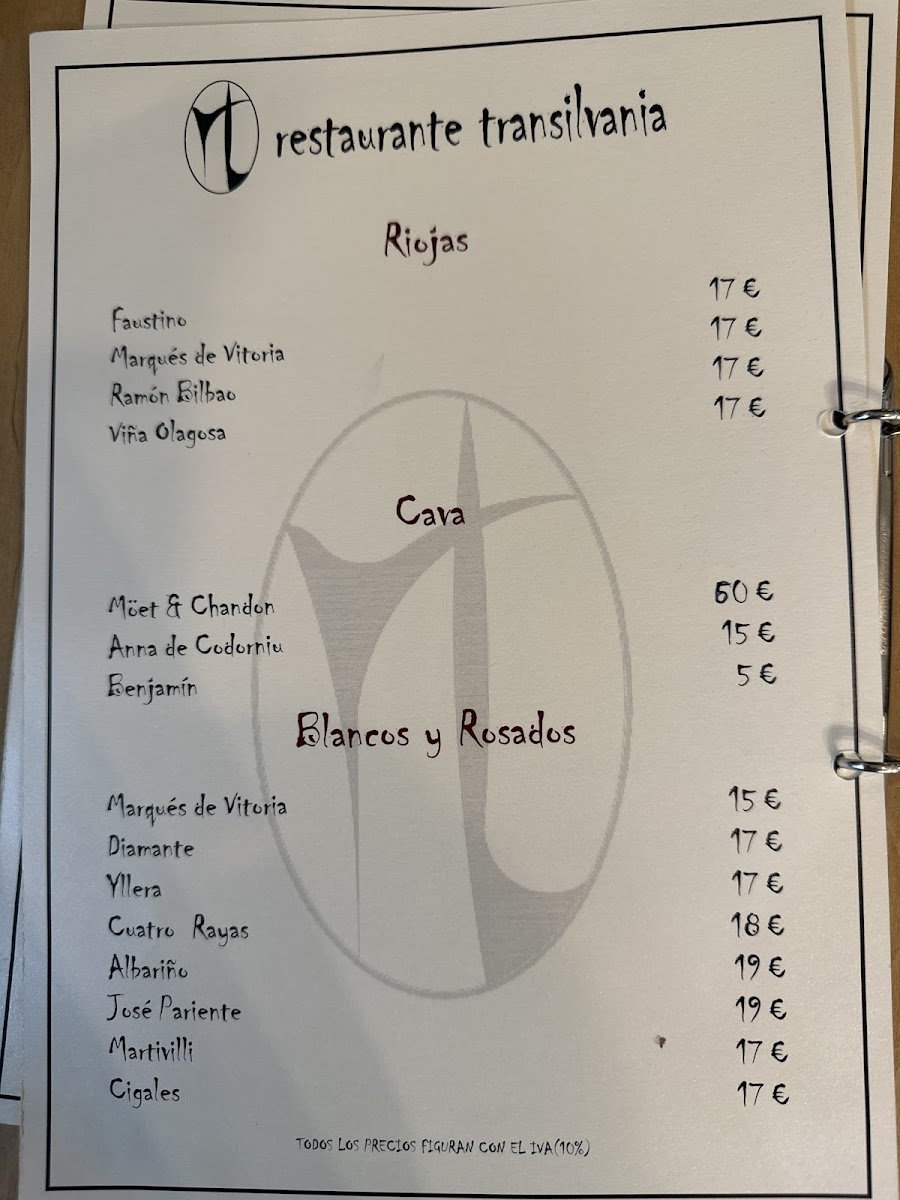 restaurante transilvania
Riojas
Faustino 17 €
Marqués de Vitoria 17 €
Ramón Bilbao 17 €
Viña Olagosa 17 €
Cava
Möet & Chandon 60 €
Anna de Codorniu 15 €
Benjamín 5 €
Blancos y Rosados
Marqués de Vitoria 15 €
Diamante 17 €
Yllera 17 €
Cuatro Rayas 18 €
Albariño 19 €
José Pariente 19 €
Martivilli 17 €
Cigales 17 €
TODOS LOS PRECIOS FIGURAN CON EL IVA(10%)